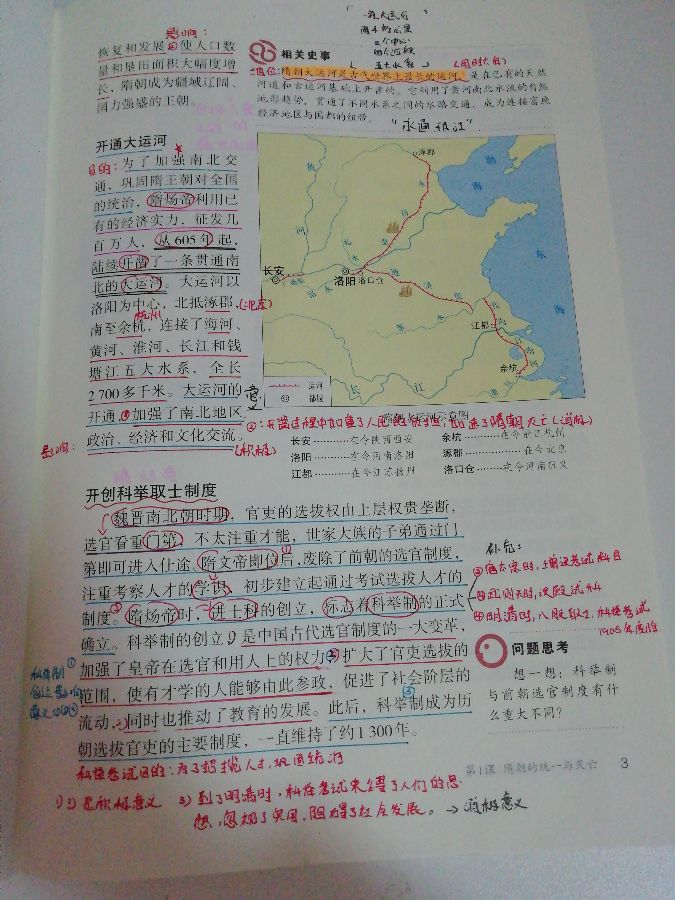 影响:
恢复和发展②使人口数
量和垦田面积大幅度增
长,隋朝成为疆域辽阔、
国力强盛的王朝。
开通大运河
目的:为了加强南北交
通,巩固隋王朝对全国
的统治,隋炀帝利用已
有的经济实力,征发几
百万人,从605年起,
陆续开凿了一条贯通南
北的大运河。大运河以
洛阳为中心,北抵涿郡,
杭州
南至余杭,连接了海河、
黄河、淮河、长江和钱
塘江五大水系,全长
2 700多千米。大运河的
开通①加强了南北地区
政治、经济和文化交流。
影响:
(积极)
一条大运河
三个中心
四个河段
五大水系
相关史事
地位:隋朝大运河是古代世界上最长的运河,是在已有的天然
河道和古运河基础上开凿的。它利用了黄河南北水流的自然
地形趋势,贯通了不同水系之间的水路交通,成为连接富庶
经济地区与国都的纽带。
涿郡
渤
海
东
海
长安
洛阳
洛口仓
江都
余坑
长
江
运河
都城
隋朝大运河示意图
长安…………在今陕西西安
余杭…………在今浙江杭州
洛阳…………在今河南洛阳
涿郡…………在今北京
江都…………在今江苏扬州
洛口仓………在今河南巩义
开创科举取士制度
魏晋南北朝时期,官吏的选拔权由上层权贵垄断,
选官看重门第,不太注重才能,世家大族的子弟通过门
第即可进入仕途。隋文帝即位后,废除了前朝的选官制度,
注重考察人才的学识,初步建立起通过考试选拔人才的
制度。隋炀帝时,进士科的创立,标志着科举制的正式
确立。科举制的创立①是中国古代选官制度的一大变革,
加强了皇帝在选官和用人上的权力②扩大了官吏选拔的
范围,使有才学的人能够由此参政,促进了社会阶层的
流动,同时也推动了教育的发展。此后,科举制成为历
朝选拔官吏的主要制度,一直维持了约1 300年。
补充:
③武则天时,设殿试科
④明清时,八股取士,科举考试
1905年废除
问题思考
想一想:科举制
与前朝选官制度有什
么重大不同?
科举制
科举考试目的:为了招揽人才,巩固统治
第1课 隋朝的统一与灭亡 3
3)到了明清时,科举考试束缚了人们的思
想,忽视了实用,阻碍了社会发展。→消极意义